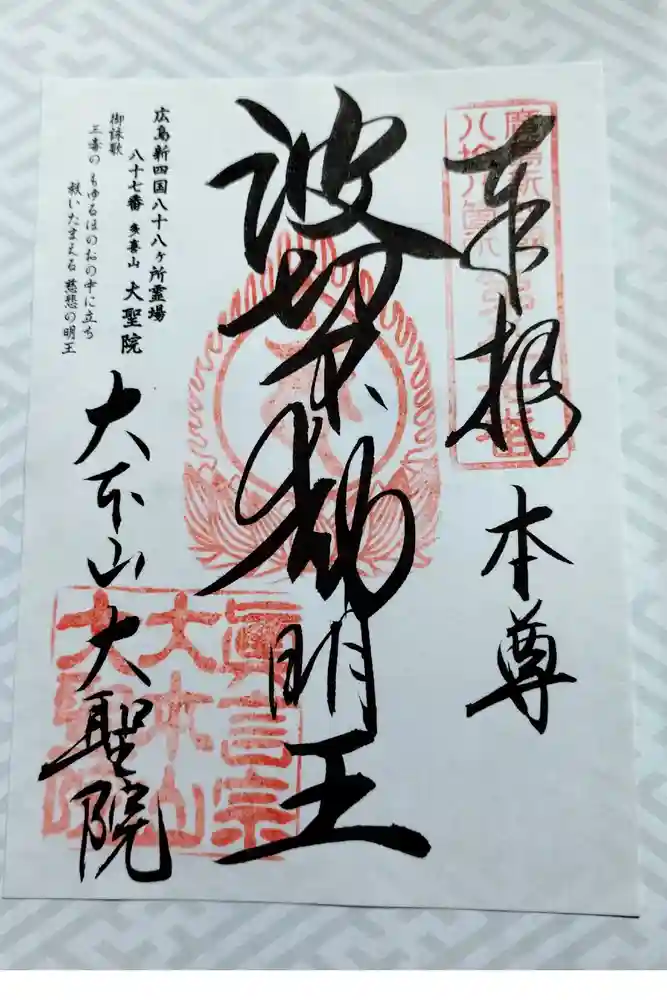 奉拝 本尊
波切不動明王
広島新四国八十八ヶ所霊場
八十七番 多喜山 大聖院
御詠歌
三毒の もゆるほのおの中に立ち
救いたまえる 慈悲の明王
大本山 大聖院
眞言宗
大本山
大聖院